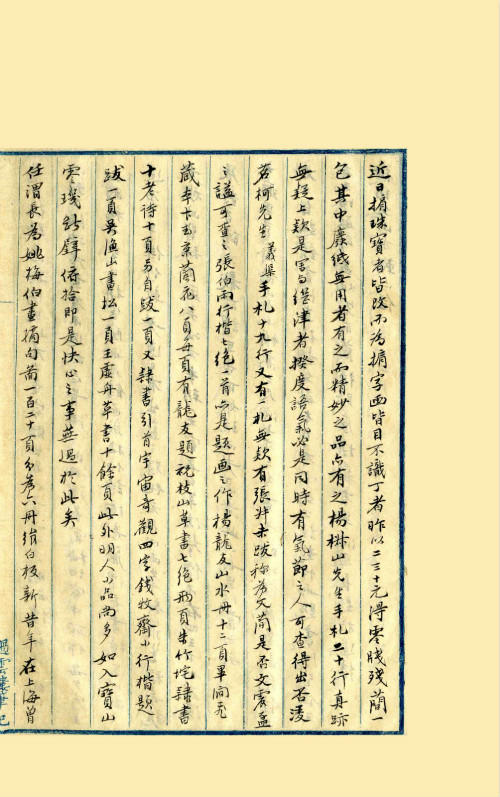 近日捐珠寶者皆改而為捐字画皆目不識丁者昨以二三十元得零牋殘蕳一
包其中廢紙無用者有之而精妙之品亦有之楊椒山先生手札二十行真跡
無疑上欵是寄繼津者揆度語氣必是同時有氣節之人可查得出否凌
若柯先生義渠手札十九行又有一札無欵有張卡未跋称為文蕳是否文震孟
之諡可查之張伯雨行楷七绝一首乃是題画之作楊龍友山水冊十二頁畢蕳飛
藏本卞玉京蘭花八頁每頁有龍友題祝枝山草書七绝兩頁朱竹垞隸書
十老詩十頁另自跋一頁又隸書引首宇宙奇觀四字錢牧齋小行楷題
跋一頁吳漁山畫松一頁王虛舟草書十餘頁此外明人小品尚多如入寶山
零璣断璧俯拾即是快心之事無過於此矣
任渭長為姚梅伯畫摘句啚一百二十頁分為六冊绢白板新昔年在上海曾
過雲樓筆記